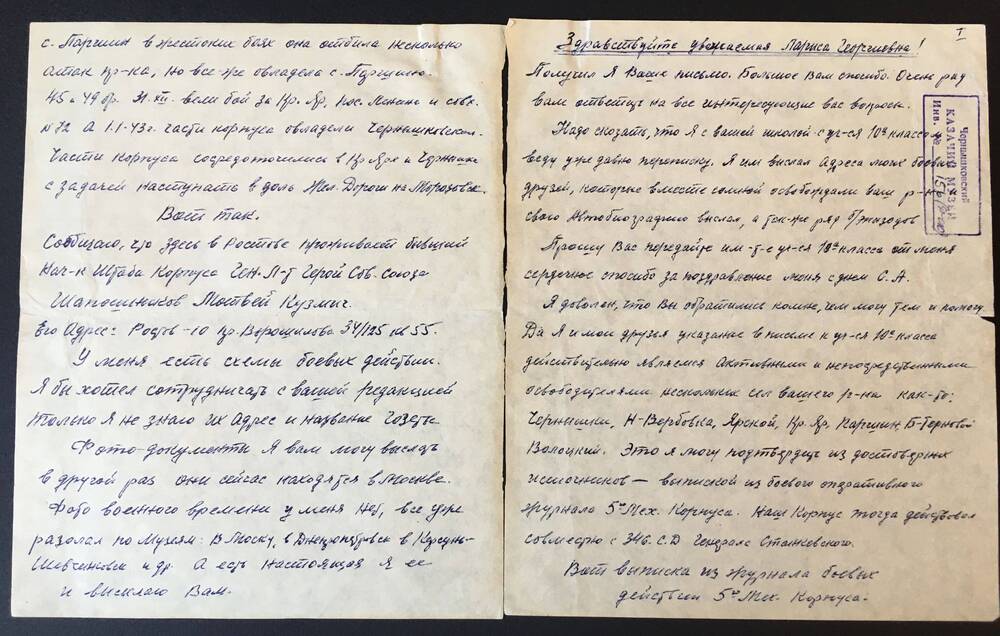 I
Здравствуйте уважаемая Лариса Георгиевна!
Получил Я Ваше письмо. Большое Вам спасибо. Очень рад
вам ответить на все интересующие вас вопросы.
Надо сказать, что Я с вашей школой с уч-ся 10го класса
веду уже давно переписку. Я им выслал Адреса моих боевых
друзей, которые вместе со мной освобождали ваш р-н и
свою Автобиографию выслал, а так-же ряд эпизодов
Прошу Вас передайте им-т-е уч-ся 10го класса от меня
сердечное спасибо за поздравление меня с днем С.А.
Я доволен, что Вы обратились ко мне, чем могу тем и помогу.
Да Я и мои друзья указаные в письме к уч-ся 10го класса
действительно являемся Активными и непосредственными
освободителями нескольких сел вашего р-на как-то:
Чернышки, Н-Вербовка, Ярской, Кр. Яр, Паршин Б-Терновой
Волоцкий. Это я могу подтвердить из достоверных
источников — выпиской из боевого оперативного
журнала 5го Мех. Корпуса. Наш Корпус тогда действовал
совместно с 346. С.Д Генерала Станкевского.
Вот выписка из журнала боевых
действии 5го Мех. Корпуса.
Чернышковский
КАЗАЧИЙ МУЗЕЙ
Инв. №
с. Паршин в жестоких боях она отбила несколько
атак пр-ка, но все-же овладела с. Паршино.
45 и 49 бр. 31.XII. вели бой за Кр. Яр, пос. Ленина и совх.
№ 72 А 1.1-43г. части корпуса овладели Чернышковской.
Части Корпуса сосредоточились в Кр Яре и Чернышк
с задачей наступать в доль Жел. Дороги на Морозовск.
Вот так.
Сообщаю, что здесь в Ростове проживает бывший
Нач-к Штаба Корпуса Ген-Л-т Герой Сов. Союза
Шапошников Матвей Кузмич.
Его Адрес: Ростов-10 пр. Ворошилова 34/125 кв 55.
У меня есть схемы боевых действии.
Я бы хотел сотрудничать с вашей редакцией
только Я не знаю их Адрес и название Газеты
Фото-документы Я вам могу выслать
в другой раз они сейчас находятся в Москве.
Фото военного времени у меня нет, все уже
разолал по Музеям: В Москву, в Днепропетровск в Корсунь-
Шевченовск и др. А есть настоящая Я ее
и высилаю Вам.